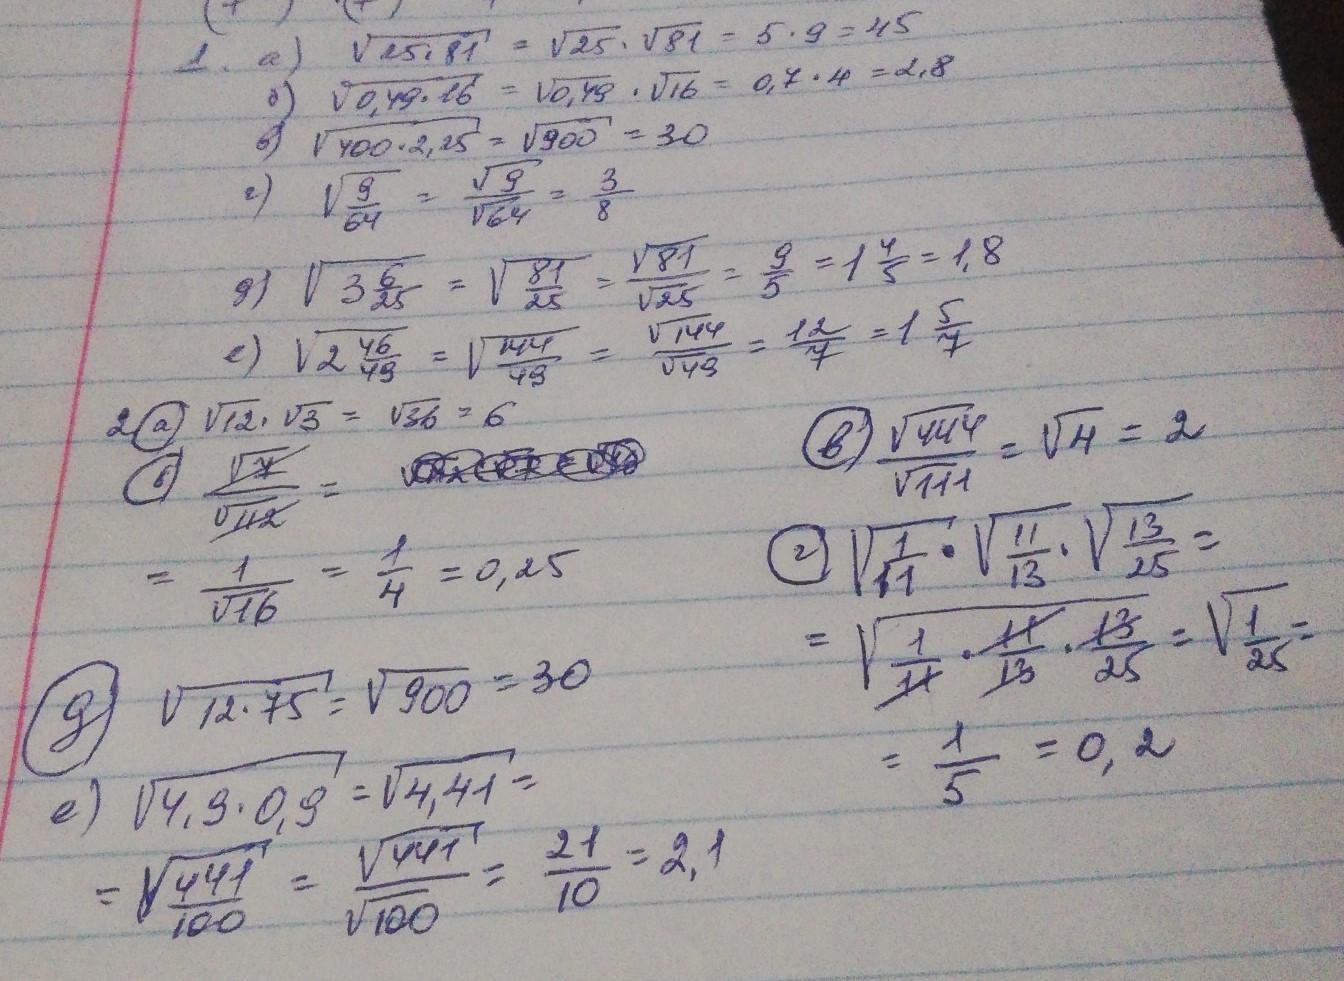 1. а) √25·81 = √25 · √81 = 5 · 9 = 45
б) √0,49·16 = √0,49 · √16 = 0,7 · 4 = 2,8
в) √400·2,25 = √900 = 30
г) √9/64 = √9/√64 = 3/8
д) √3 6/25 = √81/25 = √81/√25 = 9/5 = 1 4/5 = 1,8
е) √2 46/49 = √144/49 = √144/√49 = 12/7 = 1 5/7
2 а) √12 · √3 = √36 = 6
б) √7/√112 =
= 1/√16 = 1/4 = 0,25
в) √444/√111 = √4 = 2
г) √1/11 · √11/13 · √13/25 =
= √1/11 · 11/13 · 13/25 = √1/25 =
= 1/5 = 0,2
д √12·75 = √900 = 30
е) √4,9·0,9 = √4,41 =
= √441/100 = √441/√100 = 21/10 = 2,1